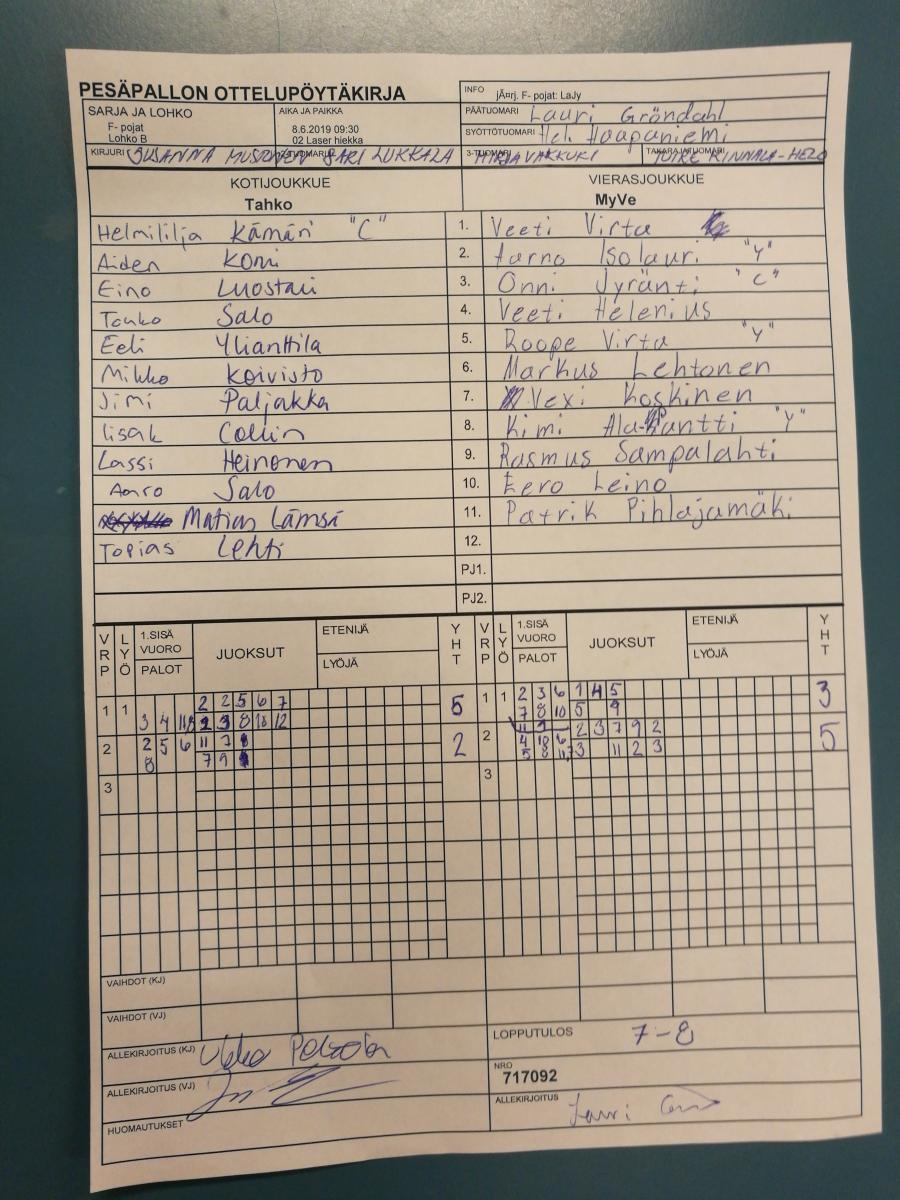 PESÄPALLON OTTELUPÖYTÄKIRJA
INFO jÄ¤rj. F- pojat: LaJy
SARJA JA LOHKO
F- pojat
Lohko B
AIKA JA PAIKKA
8.6.2019 09:30
02 Laser hiekka
PÄÄTUOMARI Lauri Gröndahl
SYÖTTÖTUOMARI Heli Haapaniemi
KIRJURI SUSANNA SARI LUKKALA
3-TUOMARI MIRJA VAKKURI
TAKARAJATUOMARI
KOTIJOUKKUE
Tahko
VIERASJOUKKUE
MyVe
Helmililja Kämäri "C" 1. Veeti Virta
Aiden Komi 2. Aarno Isolauri "Y"
Eino Luostari 3. Onni Jyränti "C"
Touko Salo 4. Veeti Helenius
Eeli Ylianttila 5. Roope Virta "Y"
Mikko Koivisto 6. Markus Lehtonen
Jimi Paljakka 7. Vexi Koskinen
Iisak Collin 8. Kimi "Y"
Lassi Heinonen 9. Rasmus Sampalahti
Aaro Salo 10. Eero Leino
Matias Lämsä 11. Patrik Pihlajamäki
Topias Lehti 12.
PJ1.
PJ2.
VRP LYÖ 1.SISÄ VUORO PALOT JUOKSUT ETENIJÄ LYÖJÄ YHT
VRP LYÖ 1.SISÄ VUORO PALOT JUOKSUT ETENIJÄ LYÖJÄ YHT
1 1 2 2 5 6 7 5
3 4
1 1 2 3 6 1 4 5 3
7 8 10 5 9
2 2 5 6 11 7 2
8 7 9
2 2 3 7 9 2 5
4 10 6
5 8 3 11 2 3
3 3
VAIHDOT (KJ)
VAIHDOT (VJ)
ALLEKIRJOITUS (KJ)
LOPPUTULOS 7-8
ALLEKIRJOITUS (VJ)
NRO
717092
HUOMAUTUKSET
ALLEKIRJOITUS Lauri